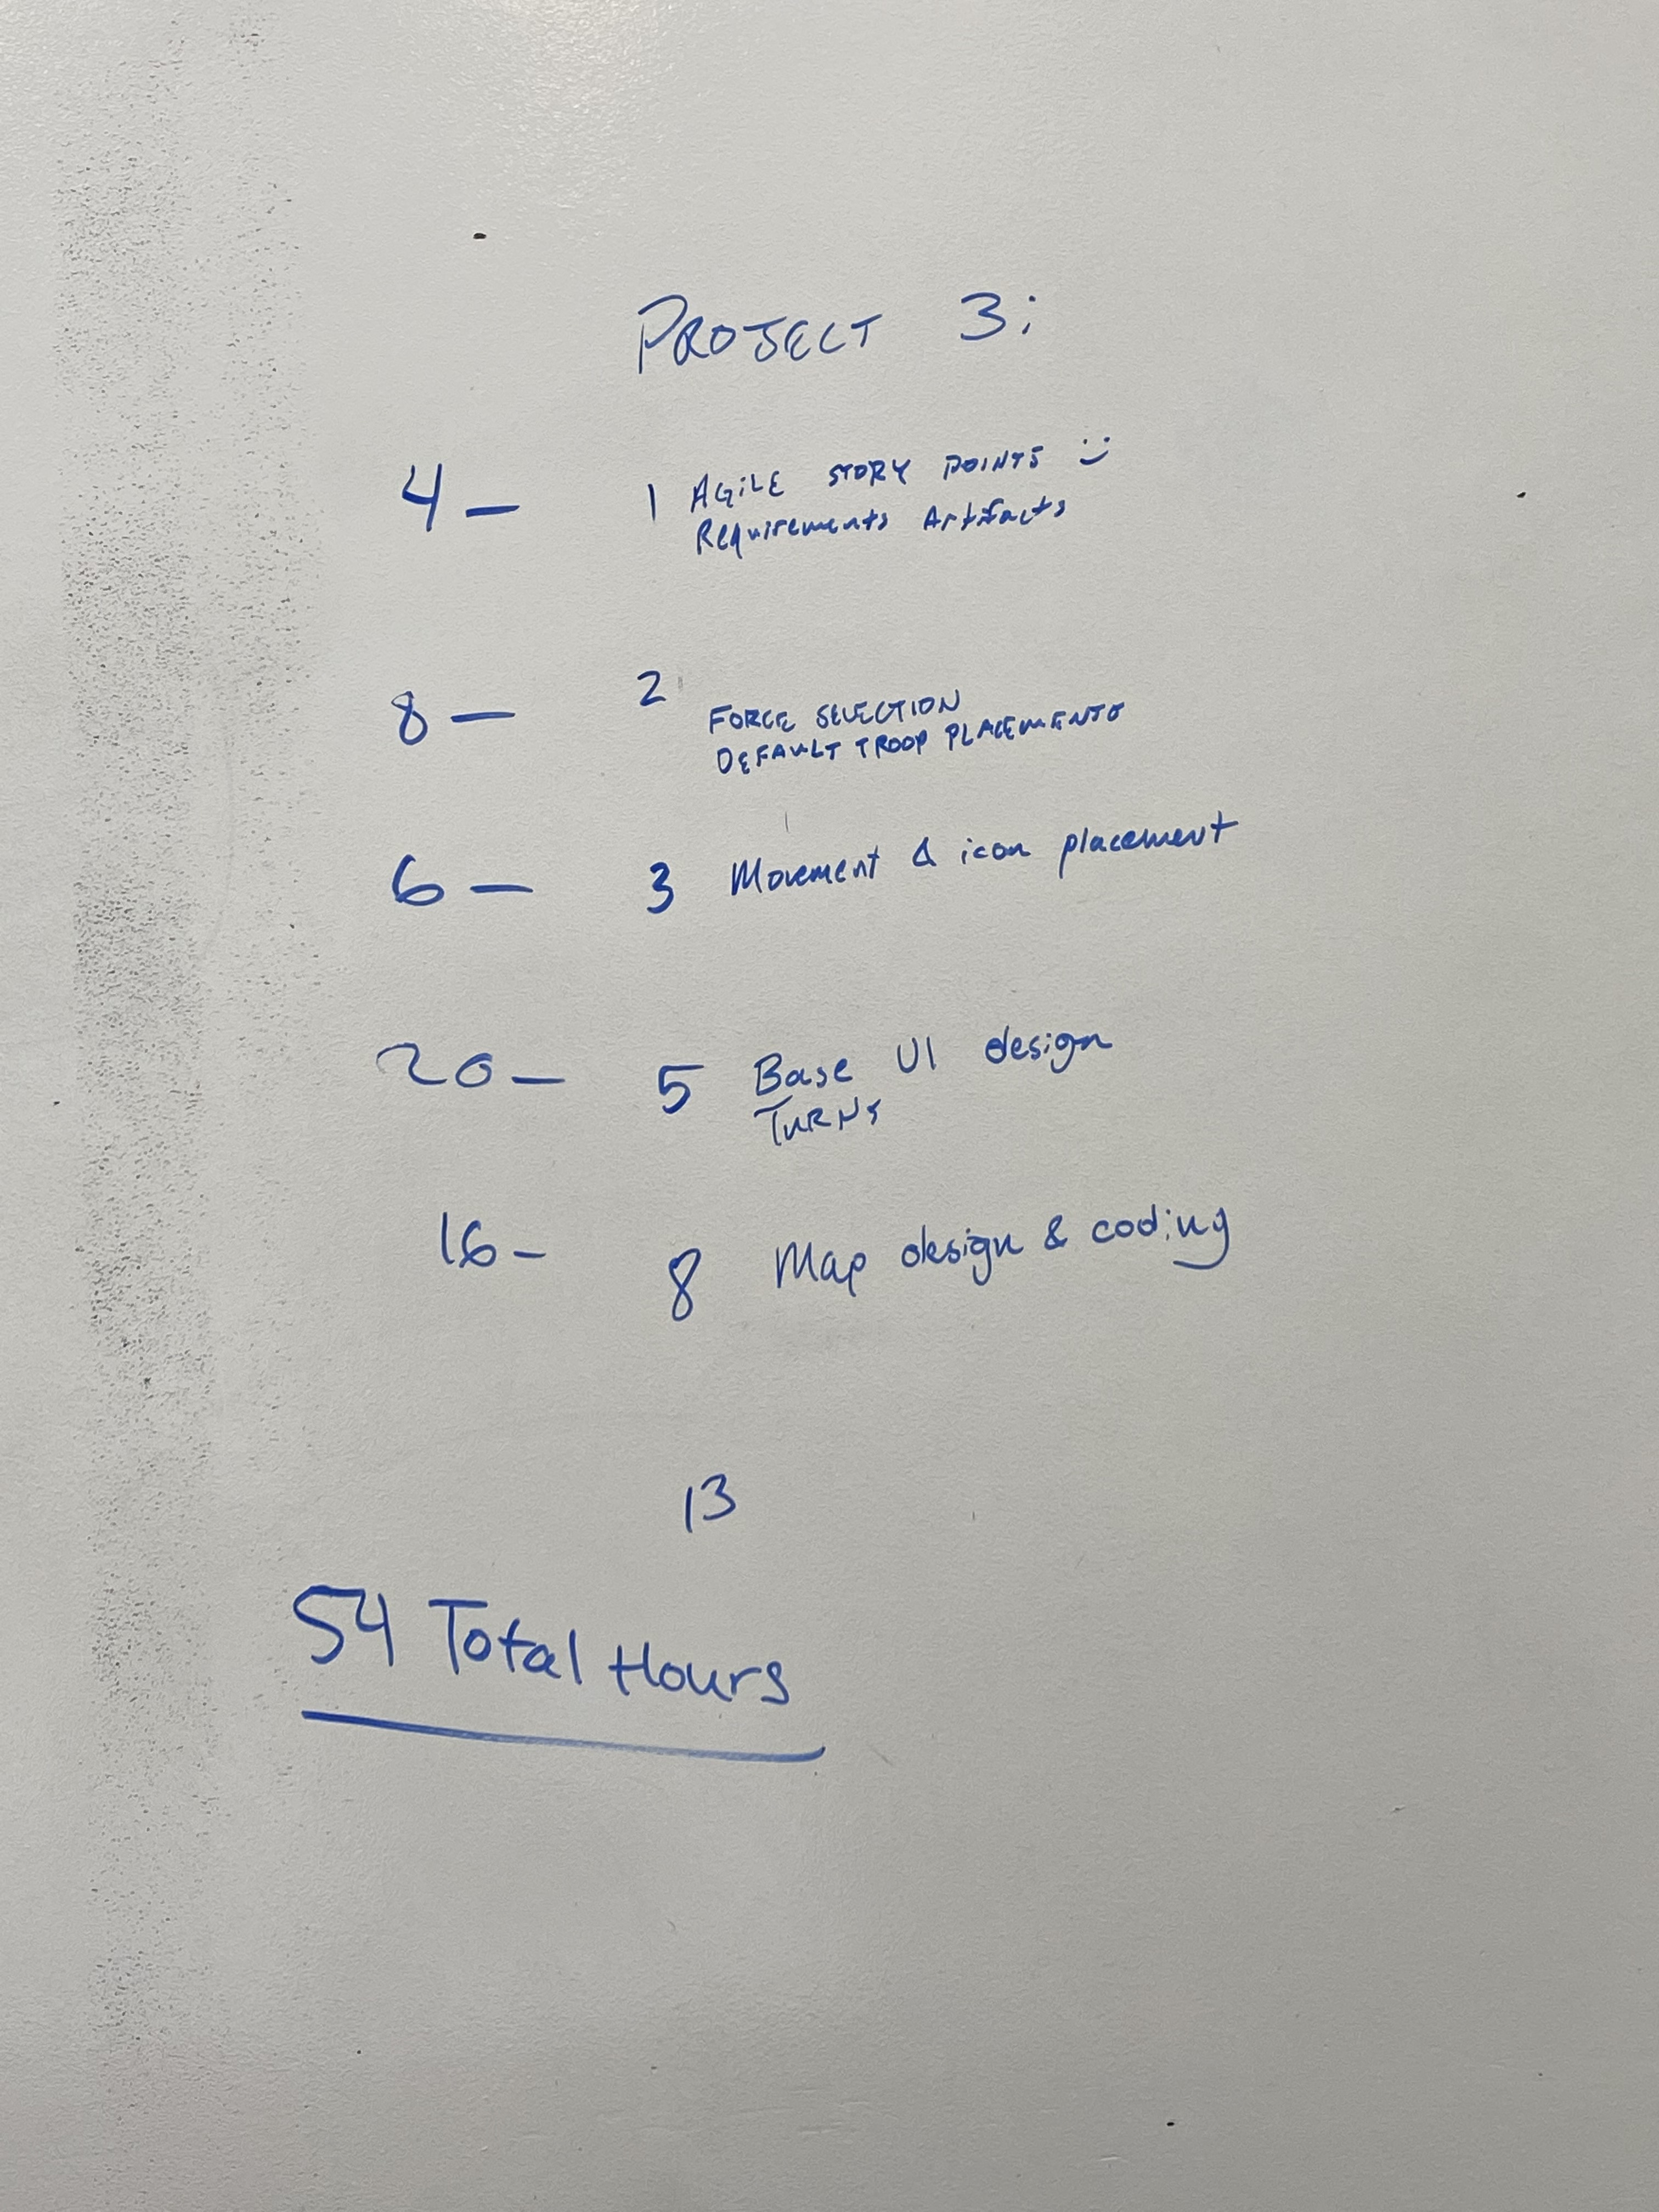 PROJECT 3:
4 — 1 AGiLE STORY POINTS :)
Requirements Artifacts
8 — 2
FORCE SELECTION
DEFAULT TROOP PLACEMENTS
6 — 3 Movement & icon placement
20 — 5 Base UI design
TURNS
16 - 8 Map design & coding
13
54 Total Hours